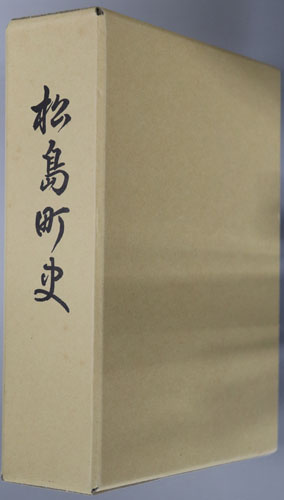 松島町史